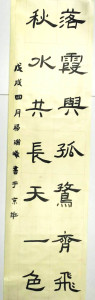 落霞與孤鶩齊飛
秋水共長天一色
戊戌四月
書於京華